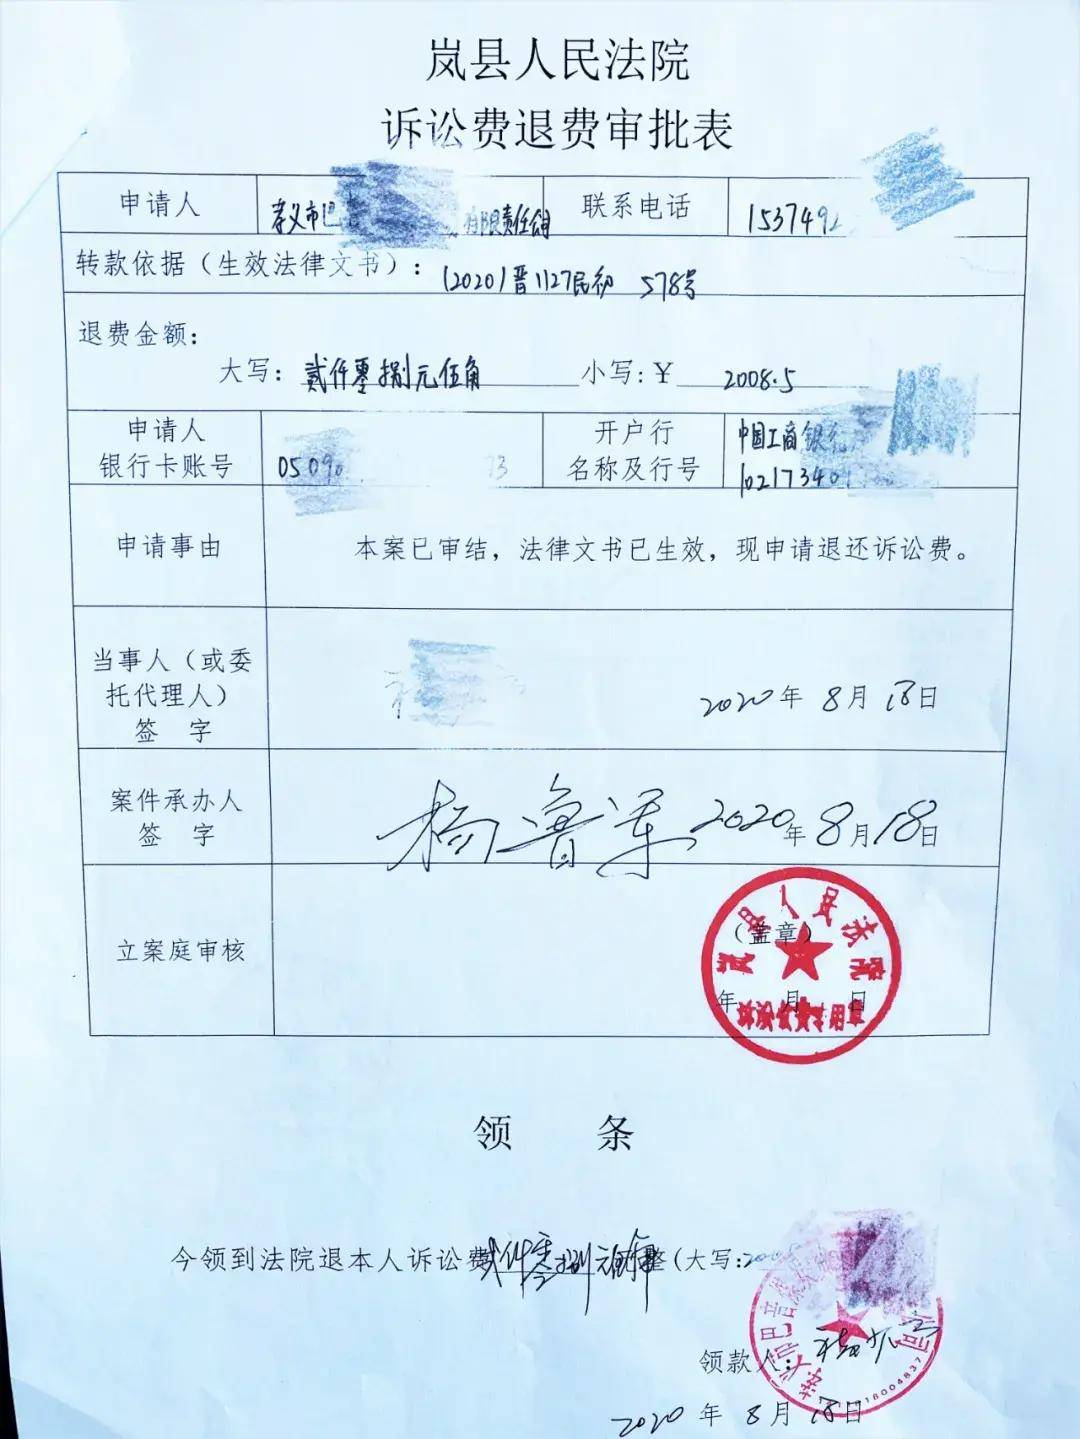 岚县人民法院
诉讼费退费审批表
申请人 孝义市巴 有限责任公司 联系电话 1537492
转款依据（生效法律文书）： (2020)晋1127民初 578号
退费金额：
大写：贰仟零捌元伍角 小写：￥ 2008.5
申请人
银行卡账号 0509 73
开户行
名称及行号
中国工商银行
10217340
申请事由 本案已审结，法律文书已生效，现申请退还诉讼费。
当事人（或委
托代理人）
签 字
2020年 8月 18日
案件承办人
签 字
杨鲁军 2020年8月18日
立案庭审核
（盖章）
年 月 日
岚县人民法院
诉讼收费专用章
领 条
今领到法院退本人诉讼费贰仟零捌元伍角整（大写：2008
领款人：
2020 年 8月 18日